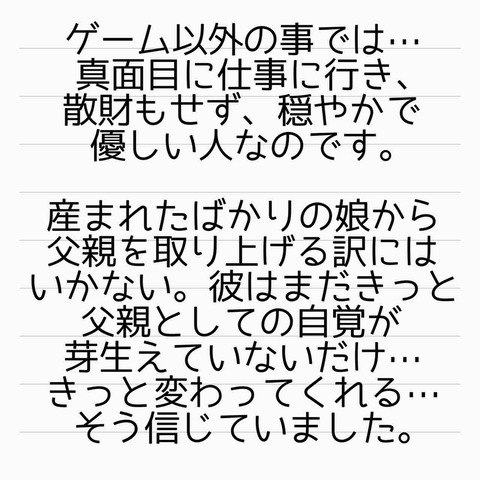 ゲーム以外の事では…
真面目に仕事に行き、
散財もせず、穏やかで
優しい人なのです。
産まれたばかりの娘から
父親を取り上げる訳には
いかない。彼はまだきっと
父親としての自覚が
芽生えていないだけ…
きっと変わってくれる…
そう信じていました。